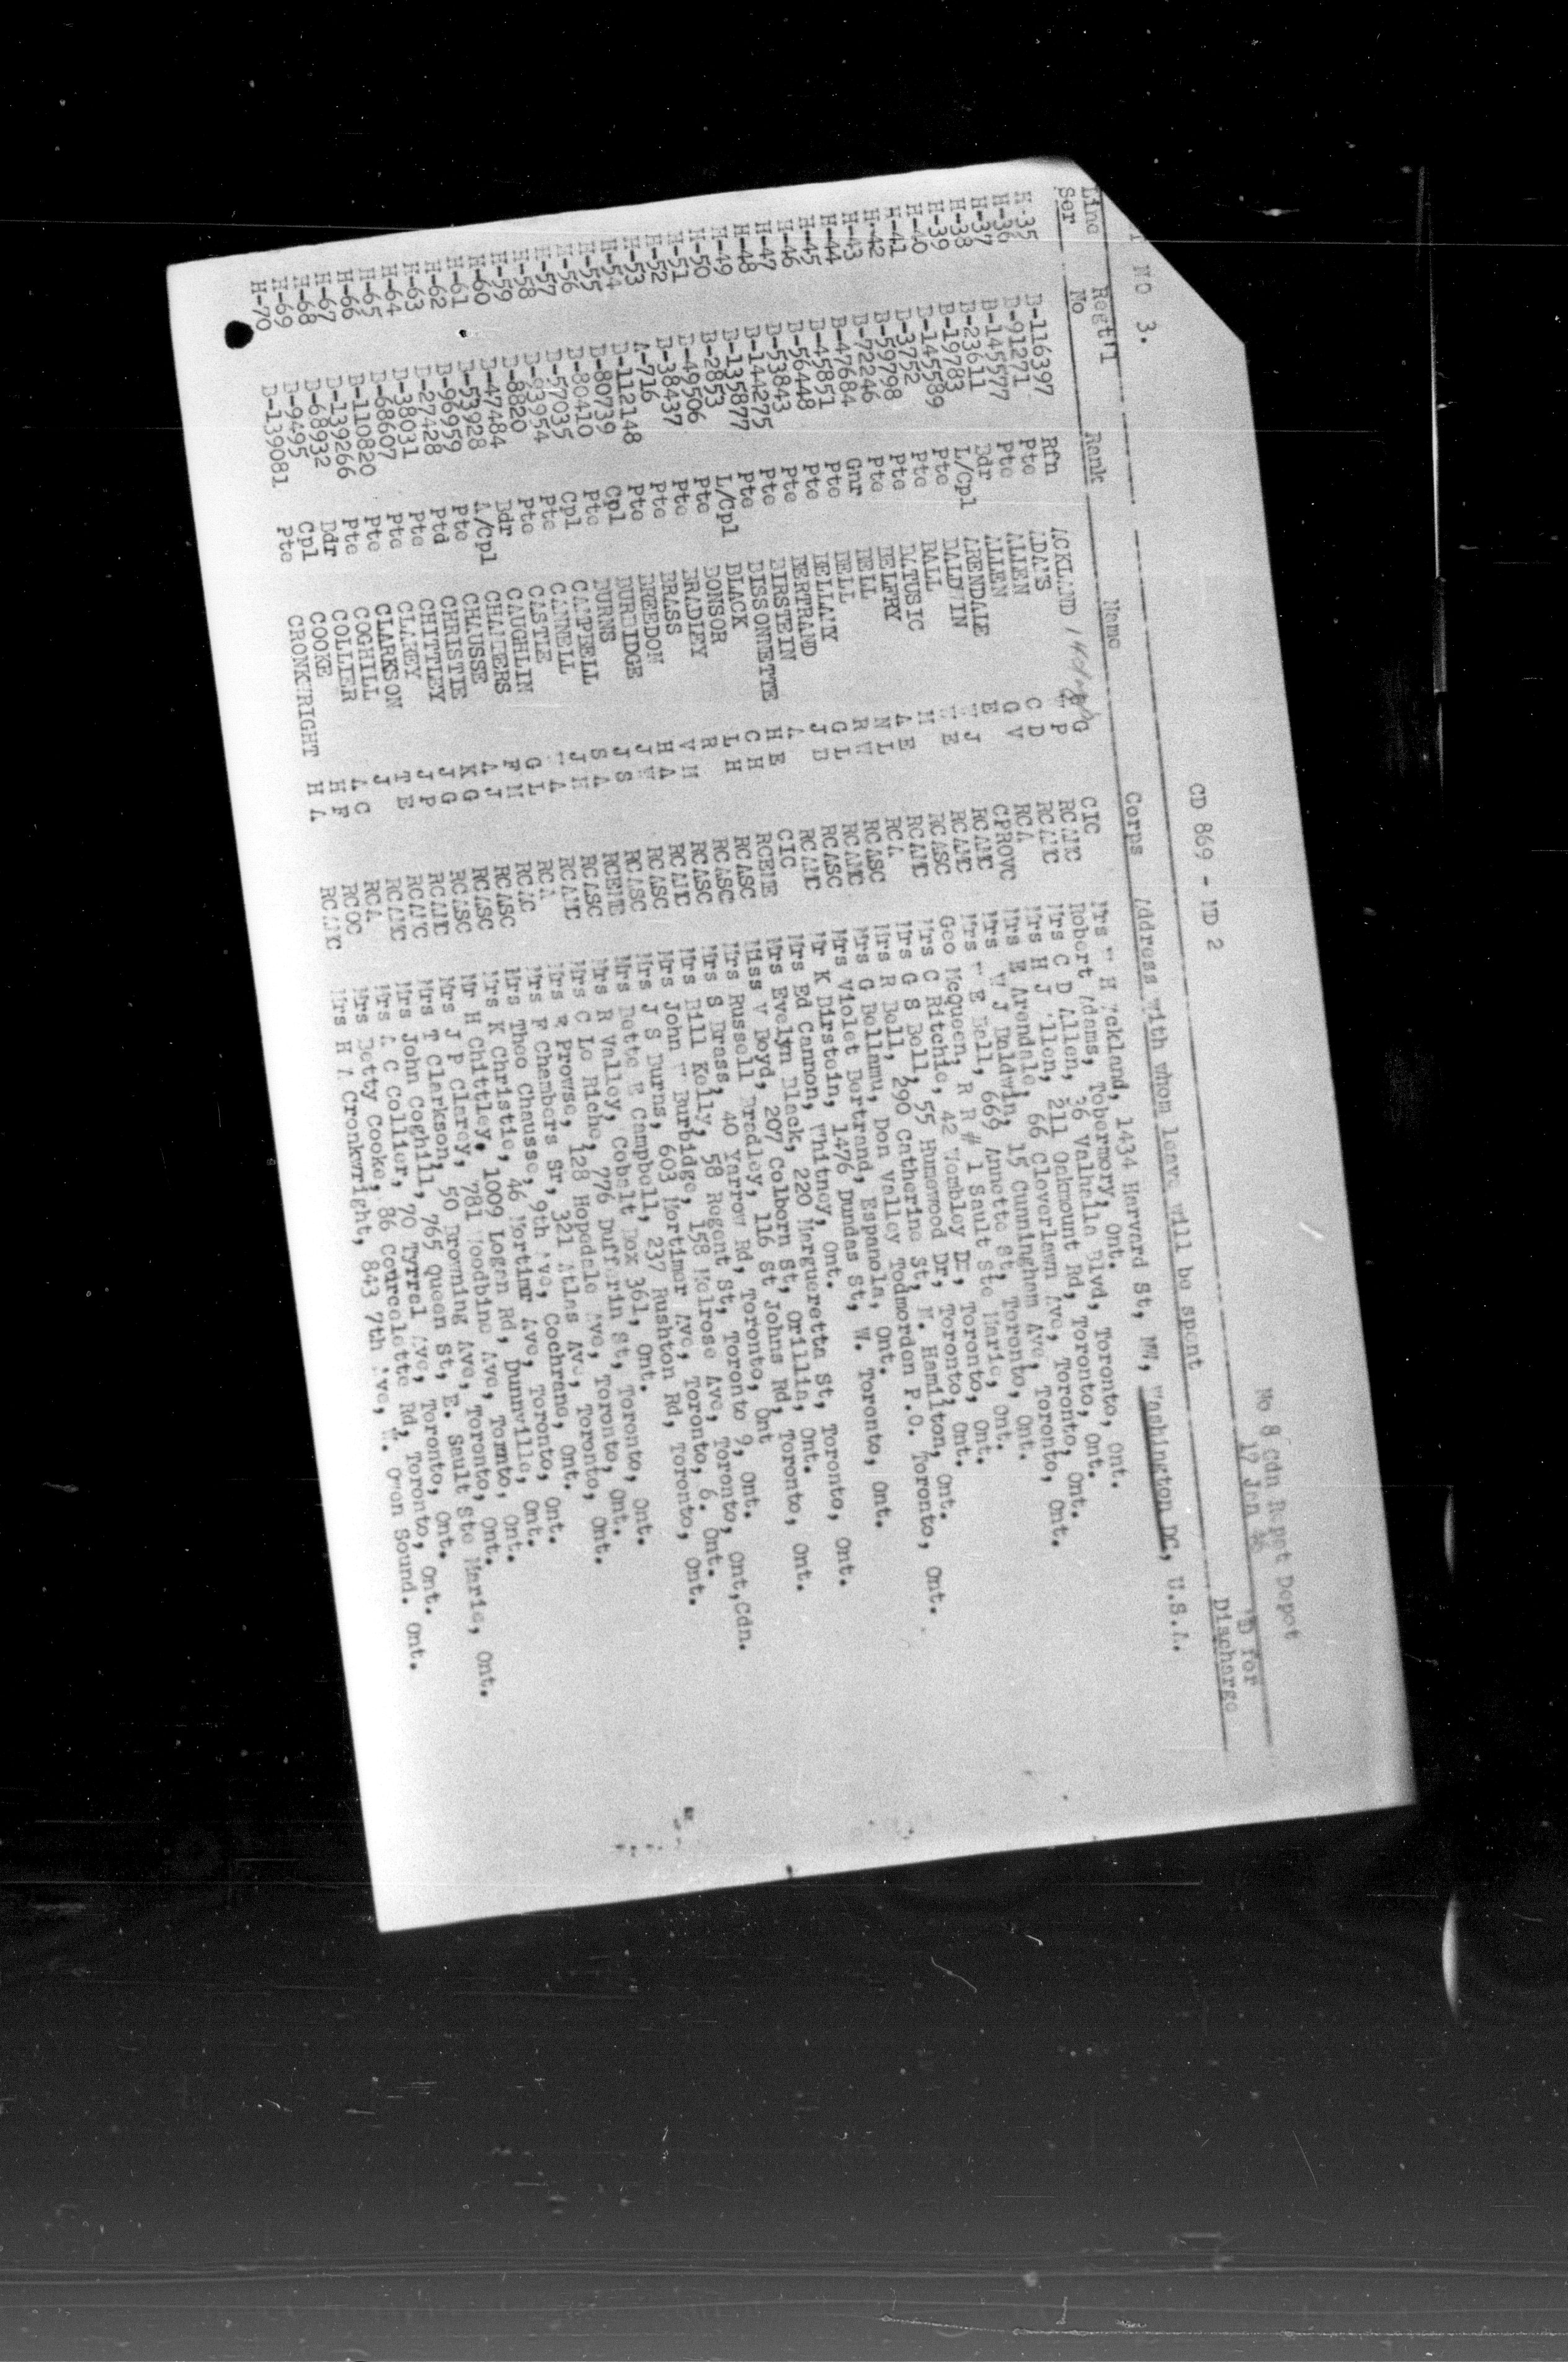 No 8 Cdn Repat Depot
NO 3. CD 869 - MD 2 17 Jan 46 MD for
Discharge
Line Regt'l Rank Name Corps Address with whom leave will be spent
Ser No
H-35 B-116397 Rfn ACKLAND G CIC Mrs W H Ackland, 1434 Harvard St, NW, Washington DC, U.S.A.
H-36 B-91271 Pte ADAMS W P RCAMC Robert Adams, Tobermory, Ont.
H-37 B-145577 Pte ALLEN C D RCAMC Mrs C D Allen, 36 Valhalla Blvd, Toronto, Ont.
H-38 B-23611 Bdr ALLEN G V RCA Mrs H J Allen, 211 Oakmount Rd, Toronto, Ont.
H-39 B-19783 L/Cpl ARENDALE E CPROVC Mrs E Arendale, 66 Cloverlawn Ave, Toronto, Ont.
H-40 B-145589 Pte BALDWIN W J RCAMC Mrs W J Baldwin, 15 Cunningham Ave, Toronto, Ont.
H-41 B-3752 Pte BALL W E RCAMC Mrs W E Ball, 669 Annette St, Toronto, Ont.
H-42 B-59798 Pte BATUSIC M RCASC Geo McQueen, R R # 1 Sault Ste Marie, Ont.
H-43 B-72246 Pte BELFRY A E RCAMC Mrs C Ritchie, 42 Wembley Dr, Toronto, Ont.
H-44 B-47684 Gnr BELL N L RCA Mrs G S Bell, 55 Humewood Dr, Toronto, Ont.
H-45 B-45851 Pte BELL R W RCASC Mrs R Bell, 290 Catherine St, N. Hamilton, Ont.
H-46 B-56448 Pte BELLAMY G L RCAMC Mrs G Bellamu, Don Valley Todmordon P.O. Toronto, Ont.
H-47 B-53843 Pte BERTRAND J B RCASC Mrs Violet Bertrand, Espanola, Ont.
H-48 B-144275 Pte BIRSTEIN A RCAMC Mr K Dirstein, 1476 Dundas St, W. Toronto, Ont.
H-49 B-135877 Pte BISSONNETTE H E CIC Mrs Ed Cannon, Whitney, Ont.
H-50 B-2853 L/Cpl BLACK C H RCEME Mrs Evelyn Black, 220 Margueretta St, Toronto, Ont.
H-51 B-49506 Pte BONSOR L H RCASC Miss V Boyd, 207 Colborn St, Orillia, Ont.
H-52 B-38437 Pte BRADLEY R RCASC Mrs Russell Bradley, 116 St Johns Rd, Toronto, Ont.
H-53 A-716 Pte BRASS V H RCASC Mrs S Brass, 40 Yarrow Rd, Toronto, Ont
H-54 B-112148 Pte BREEDON H A RCAMC Mrs Bill Kelly, 58 Regent St, Toronto 9, Ont.
H-55 B-80739 Cpl BURBIDGE J W RCASC Mrs John W Burbidge, 158 Melrose Ave, Toronto, Ont,Cdn.
H-56 B-80410 Pte BURNS J S RCASC Mrs J S Burns, 603 Mortimer Ave, Toronto, 6. Ont.
H-57 B-57035 Cpl CAMPBELL S A RCEME Mrs Bette E Campbell, 237 Rushton Rd, Toronto, Ont.
H-58 B-83954 Pte CANNELL J H RCASC Mrs R Valley, Cobalt Box 361, Ont.
H-59 B-8820 Pte CASTLE A RCAMC Mrs C Le Riche, 776 Dufferin St, Toronto, Ont.
H-60 B-47484 Bdr CAUGHLIN G L RCA Mrs R Prowse, 128 Hopedale Ave, Toronto, Ont.
H-61 B-53928 A/Cpl CHAMBERS F H RCAC Mrs F Chambers Sr, 321 Atlas Ave, Toronto, Ont.
H-62 B-96959 Pte CHAUSSE A J RCASC Mrs Theo Chausse, 9th Ave, Cochrane, Ont.
H-63 B-27428 Ptd CHRISTIE K G RCASC Mrs K Christie, 46 Mortimr Ave, Toronto, Ont.
H-64 B-38031 Pte CHITTLEY J G RCASC Mr H Chittley, 1009 Logan Rd, Dunnville, Ont.
H-65 B-68607 Pte CLAREY J P RCAMC Mrs J P Clarey, 781 Woodbine Ave, Tornto, Ont.
H-66 B-110820 Pte CLARKSON T E RCAMC Mrs T Clarkson, 50 Browning Ave, Toronto, Ont.
H-67 B-139266 Pte COGHILL J RCAMC Mrs John Coghill, 765 Queen St, E. Sault Ste Marie, Ont.
H-68 B-68932 Bdr COLLIER A C RCA Mrs A C Collier, 70 Tyrrel Ave, Toronto, Ont.
H-69 B-9495 Cpl COOKE H F RCOC Mrs Betty Cooke, 86 Courcelette Rd, Toronto, Ont.
H-70 B-139081 Pte CRONKWRIGHT H A RCAMC Mrs H A Cronkwright, 843 7th Ave, W. Owen Sound. Ont.